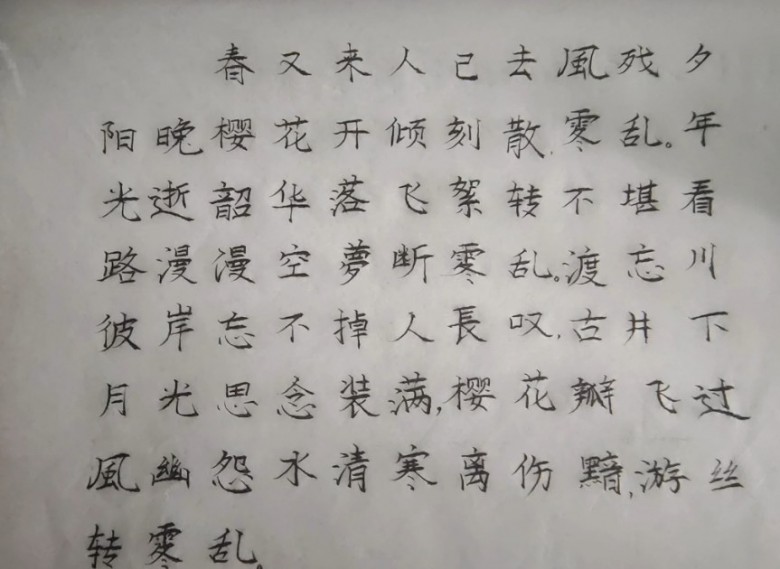 春又来人已去風残夕
阳晚樱花开倾刻散零乱。年
光逝韶华落飞絮转不堪看
路漫漫空夢断零乱。渡忘川
彼岸忘不掉人長叹,古井下
月光思念装满,樱花瓣飞过
風幽怨水清寒离伤黯,游丝
转零乱。